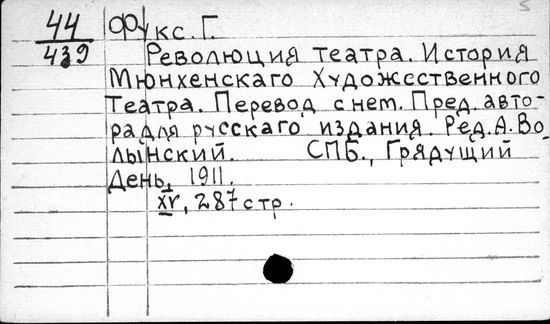 44 Фукс. Г.
439 Революция театра. История
Мюнхенскаго Художественного
Театра. Перевод с нем. Пред. авто-
ра для русскаго издания. Ред. А. Во
лынский. СПБ., Грядущий
День, 1911.
XV, 287 стр.